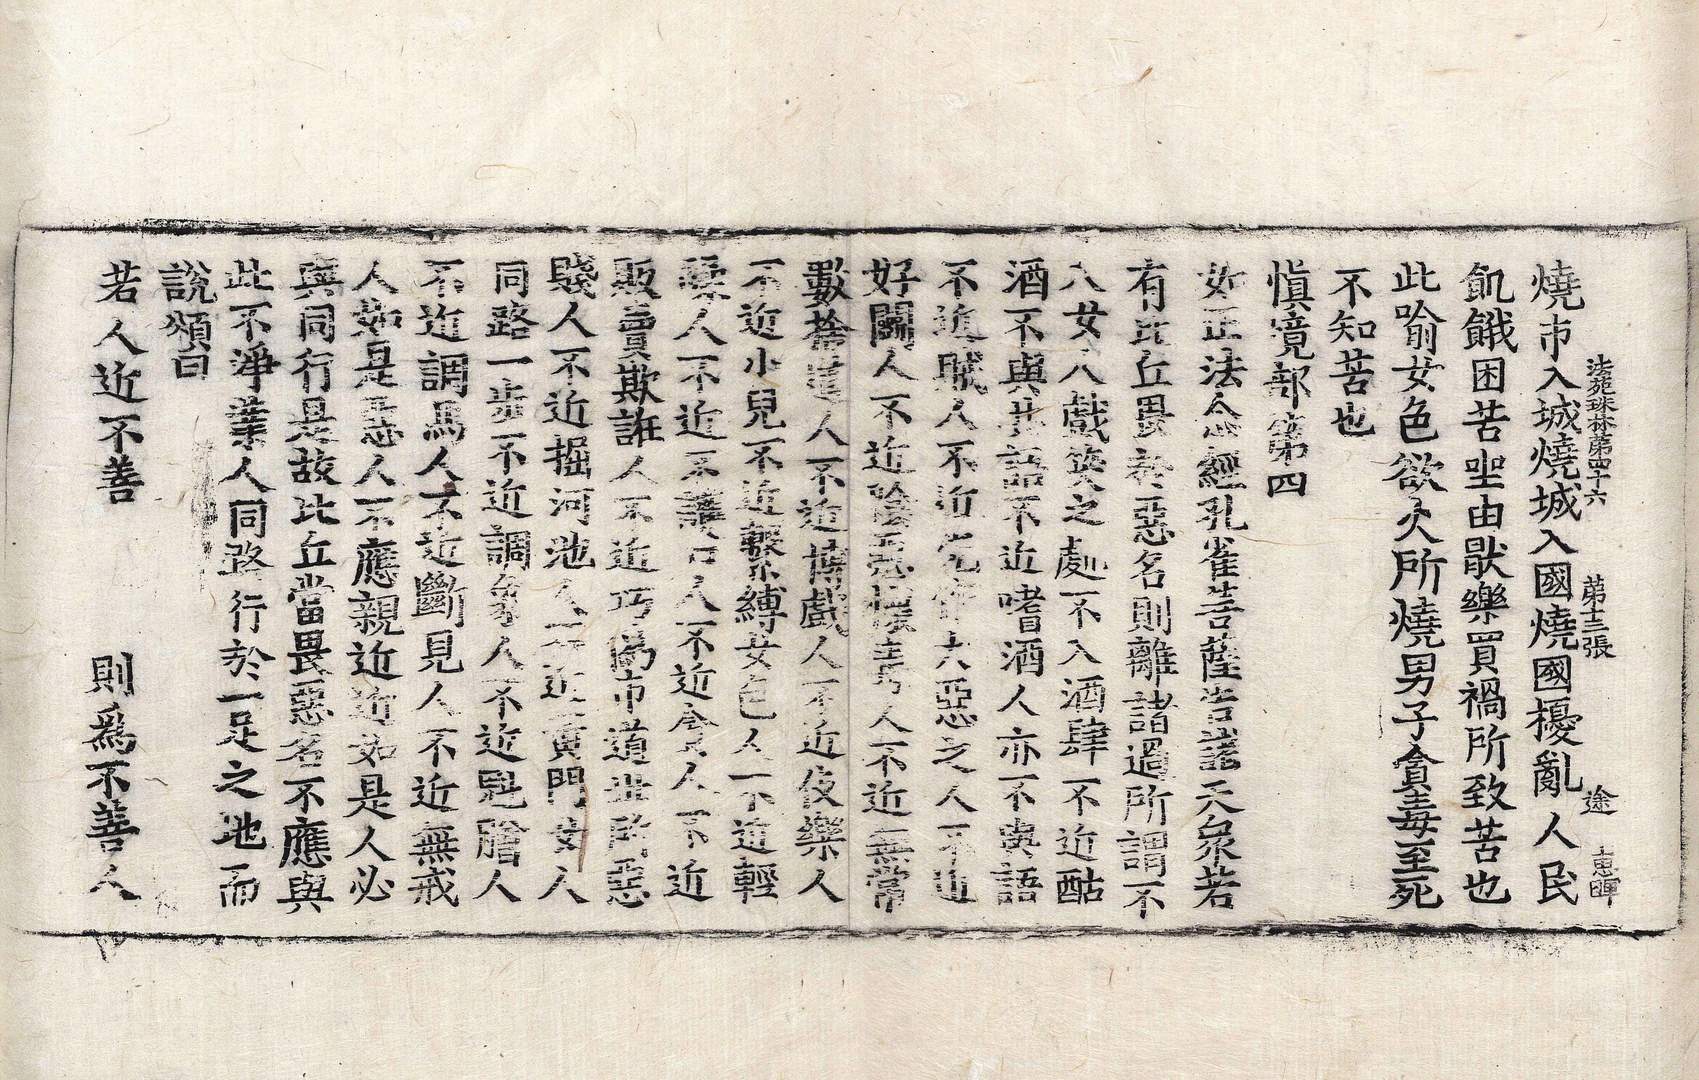 法苑珠林第四十六 第十三張 途 惠暉
燒市入城燒城入國燒國擾亂人民
飢餓困苦坐由猒樂買禍所致苦也
此喻女色欲火所燒男子貪毒至死
不知苦也
慎境部第四
如正法念經孔雀菩薩告諸天衆若
有比丘畏於惡名則離諸過所謂不
入女人戲笑之處不入酒肆不近酤
酒不與共語不近嗜酒人亦不與語
不近賊人不近先作大惡之人不近
好鬪人不近陰惡懷毒人不近無常
數捨道人不近博戲人不近伎樂人
不近小兒不近繫縛女色人不近輕
人不近不護口人不近貪人不近
販賣欺誑人不近巧偽市道世所惡
賤人不近掘河池人不近黃門女人
同路一步不近調象人不近魁膾人
不近調馬人不近斷見人不近無戒
人如是惡人不應親近近如是人必
與同行是故比丘當畏惡名不應與
此不淨業人同路行於一足之地而
說頌曰
若人近不善 則爲不善人